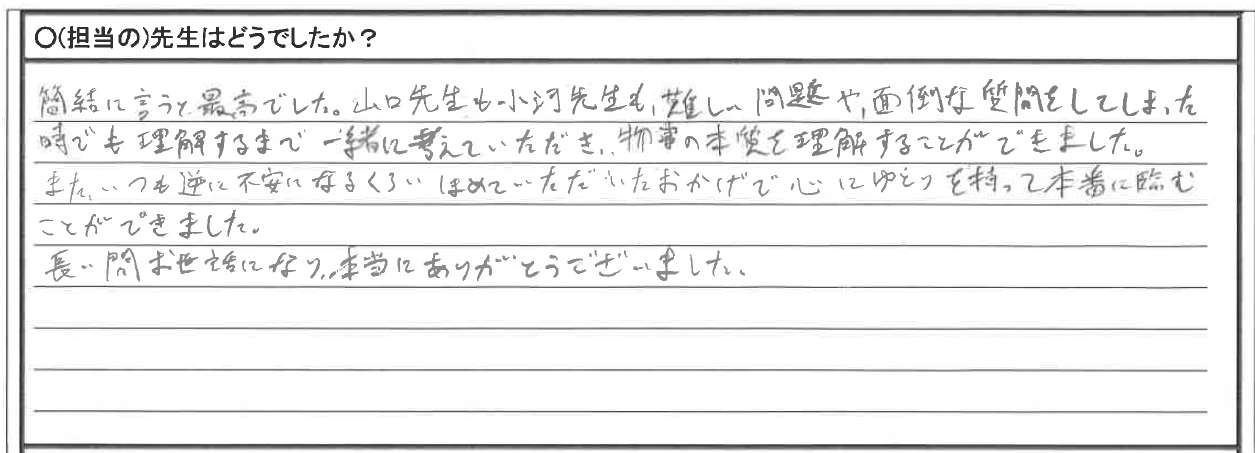 〇(担当の)先生はどうでしたか？
簡結に言うと最高でした。山口先生も小河先生も、難しい問題や、面倒な質問をしてしまった
時でも理解するまで一緒に考えていただき、物事の本質を理解することができました。
また、いつも逆に不安になるくらいほめていただいたおかげで心にゆとりを持って本番に臨む
ことができました。
長い間お世話になり、本当にありがとうございました。